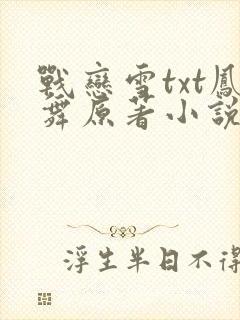 戰戀雪txt鳳
舞原著小說
浮生半日不得